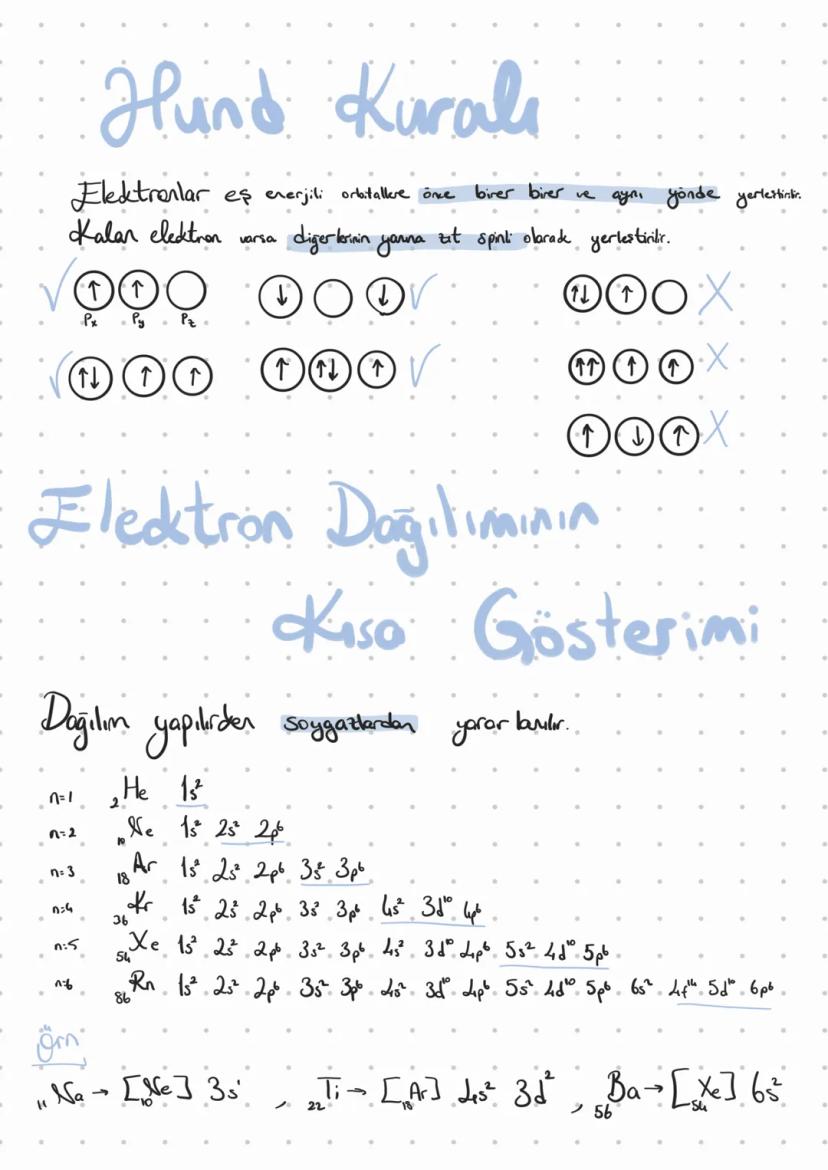 Hund Kuralı
Elektronlar eş enerjili orbitallere önce birer birer ve aynı yönde yerleştirilir.
Kalan elektron varsa diğerlerinin yanına zıt spinli olarak yerleştirilir.
√ ↑ ↑ ↓ ↓ √ ↑↓ ↑ X
Px Py Pz
√ ↑↓ ↑ ↑ ↑ ↑↓ ↑ √ ↑↑ ↑ ↑ X
↑ ↓ ↑ X
Elektron Dağılımının
Kısa Gösterimi
Dağılım yapılırken soygazlardan yararlanılır.
n=1 ₂He 1s²
n=2 ₁₀Ne 1s² 2s² 2p⁶
n=3 ₁₈Ar 1s² 2s² 2p⁶ 3s² 3p⁶
n=4 ₃₆Kr 1s² 2s² 2p⁶ 3s² 3p⁶ 4s² 3d¹⁰ 4p⁶
n=5 ₅₄Xe 1s² 2s² 2p⁶ 3s² 3p⁶ 4s² 3d¹⁰ 4p⁶ 5s² 4d¹⁰ 5p⁶
n=6 ₈₆Rn 1s² 2s² 2p⁶ 3s² 3p⁶ 4s² 3d¹⁰ 4p⁶ 5s² 4d¹⁰ 5p⁶ 6s² 4f¹⁴ 5d¹⁰ 6p⁶
Örn
₁₁Na → [₁₀Ne] 3s¹ , ₂₂Ti → [₁₈Ar] 4s² 3d² , ₅₆Ba → [₅₄Xe] 6s²